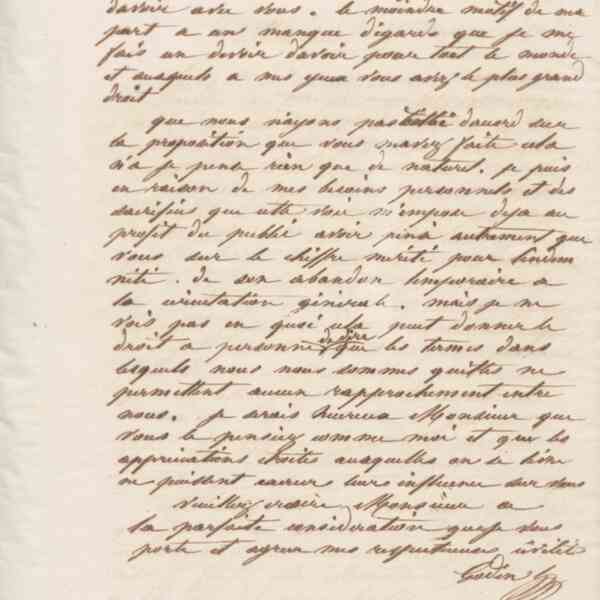 davoir avec vous. le moindre motif de ma
part a un manque d'égards que je me
fais un devoir davoir pour tout le monde
et auxquels a mes yeux vous avez le plus grand
droit
que nous n'ayons pas été d'accord sur
la proposition que vous m'avez faite cela
n'a je pense rien que de naturel. je puis
en raison de mes besoins personnels et des
sacrifices que cette voie m'impose deja au
profit du public avoir pensé autrement que
vous sur le chiffre mérité pour lindem
nité. de son abandon temporaire a
la circulation générale. mais je ne
vois pas en quoi cela peut donner le
droit a personne de dire que les termes dans
lesquels nous nous sommes quittés ne
permettent aucun rapprochement entre
nous. je serais heureux Monsieur que
vous le pensiez comme moi et que les
appréciations étroites auxquelles on se livre
ne puissent exercer leurs influence sur vous
veuillez croire Monsieur a
la parfaite considération que je vous
porte et agreer mes respectueuses civilités
Godin